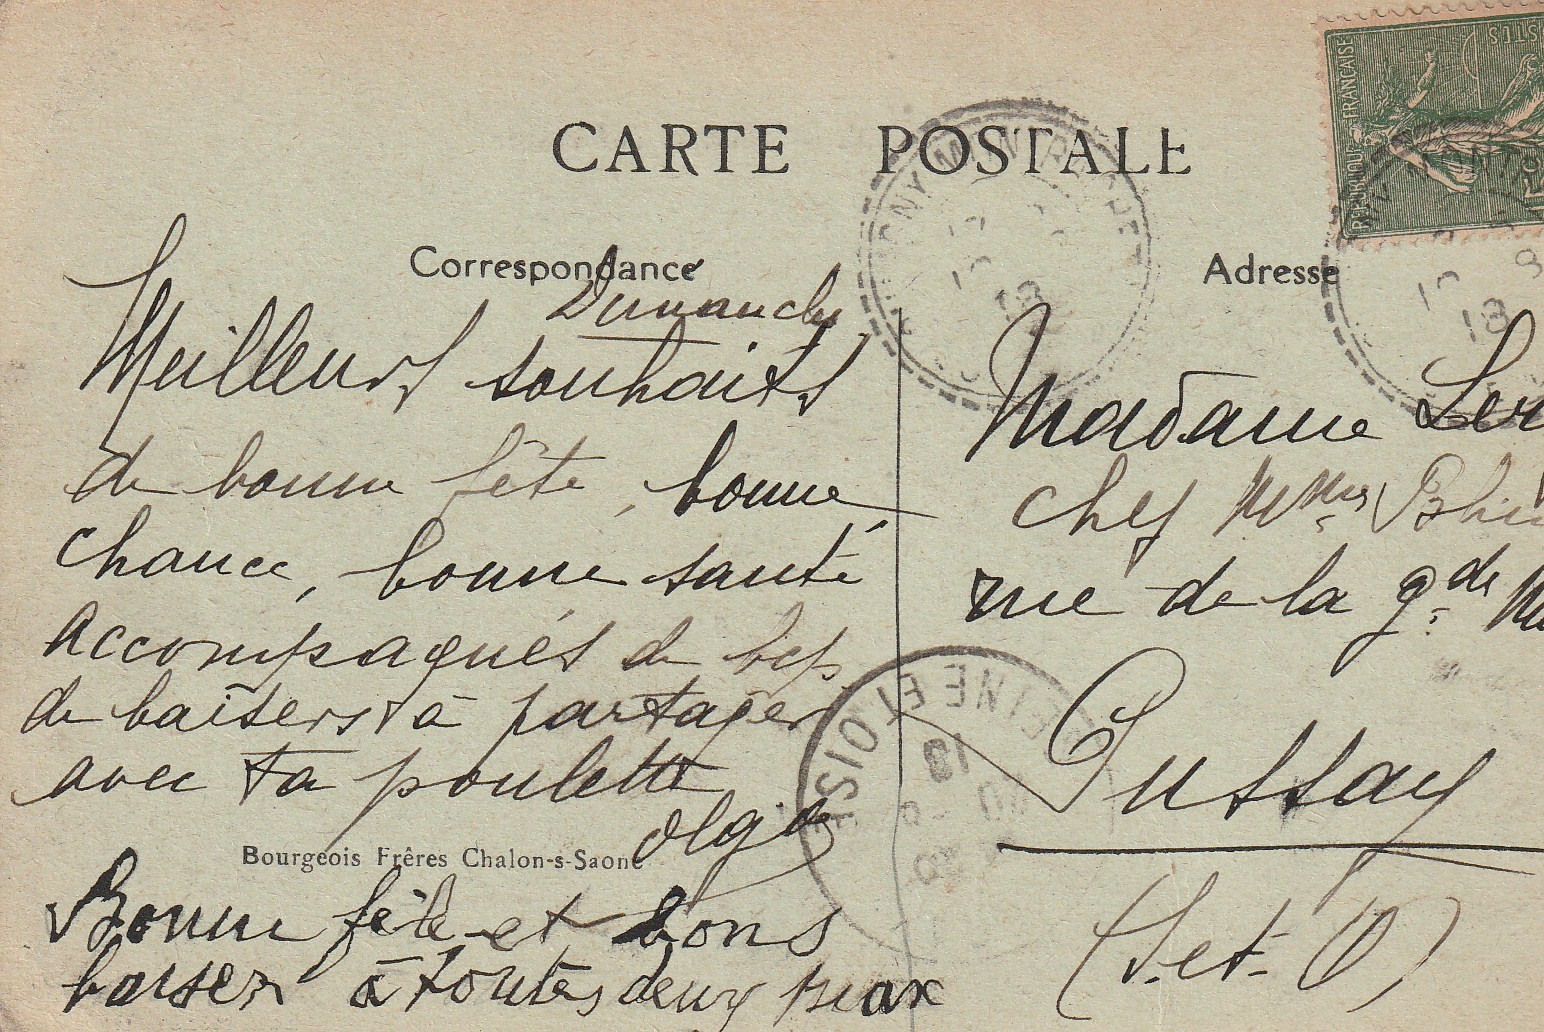 CARTE POSTALE
Correspondance
Adresse
RÉPUBLIQUE FRANÇAISE
Dimanche
Meilleurs souhaits
de bonne fête, bonne
chance, bonne santé
accompagnés de bcp
de baisers à partager
avec ta poulette
Olga
Bourgeois Frères Chalon-s-Saone
Bonne fête et bons
baisers à toutes deux
Madame
chez Mmes
rue de la gde
Pussay
(S. et O)
SEINE ET OISE
18
18